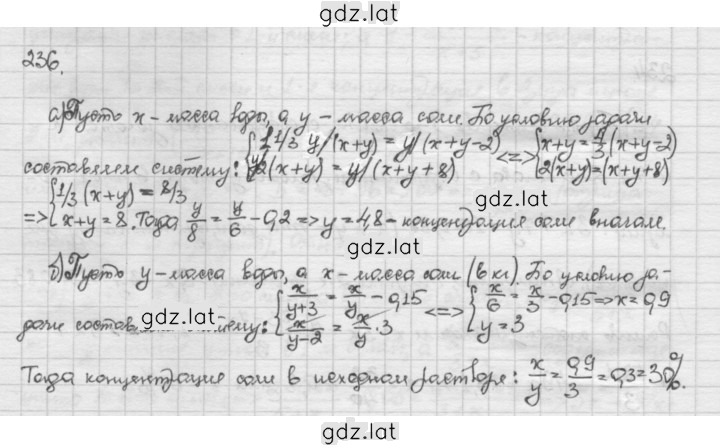 gdz.lat
236.
а) Пусть x - масса воды, а y - масса соли. По условию задачи
составляем систему: { 1 1/3 y/(x+y) = y/(x+y-2) y/2(x+y) = y/(x+y+8) <=> { x+y = 4/3 (x+y-2) 2(x+y)=(x+y+8)
=> { 1/3 (x+y) = 8/3 x+y = 8. Тогда y/8 = y/6 - 0,2 => y = 4,8 - концентрация соли вначале.
б) Пусть y - масса воды, а x - масса соли (в кг). По условию за-
дачи составляем систему: { x/(y+3) = x/y - 0,15 x/(y-2) = x/y · 3 <=> { x/6 = x/3 - 0,15 => x = 0,9 y = 3
gdz.lat
Тогда концентрация соли в исходном растворе: x/y = 0,9/3 = 0,3 = 30%.
gdz.lat